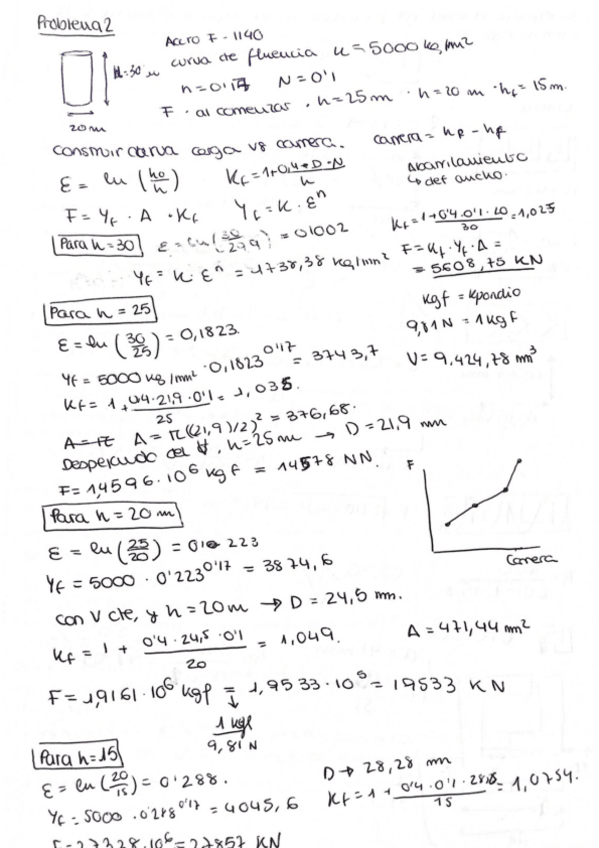 Problema 2
Acero F-1140
curva de fluencia K = 5000 kg/mm²
h = 30 m
20 m
n = 0'17 N = 0'1
F · al comenzar, · h = 25 m · h = 20 m · hf = 15 m.
Construir curva carga vs carrera. carrera = h₀ - hf
ε = ln (h₀/h) Kf = 1 + 0,4 · D · N / h
Abarrilamiento
↳ def ancho.
F = Yf · A · Kf Yf = K · εⁿ
Kf = 1 + 0'4 · 0'1 · 20 / 30 = 1,025
Para h = 30 ε = ln (30/29'9) = 0'002
F = Kf · Yf · A =
= 5608,75 KN
Yf = K · εⁿ = 1738,38 kg/mm²
Kgf = Kpondio
9,81 N = 1 kgf
V = 9,424,78 mm³
Para h = 25
ε = ln (30/25) = 0,1823.
Yf = 5000 kg/mm² · 0,1823^0'17 = 3743,7
Kf = 1 + 0'4 · 21'9 · 0'1 / 25 = 1,035.
A = π A = π((21,9)/2)² = 376,68.
Despejando del V, h = 25 m → D = 21,9 mm
F = 1,4596 · 10⁶ kgf = 14578 NN.
F
Carrera
Para h = 20 m
ε = ln (25/20) = 0 223
Yf = 5000 · 0'223^0'17 = 3874,6
con V cte, y h = 20 m → D = 24,5 mm.
Kf = 1 + 0'4 · 24,5 · 0'1 / 20 = 1,049. A = 471,44 mm²
F = 1,9161 · 10⁶ kgf = 1,9533 · 10⁵ = 19533 KN
1 kgf / 9,81 N
Para h = 15
ε = ln (20/15) = 0'288. D → 28,28 mm
Yf = 5000 · 0'288^0'17 = 4045,6 Kf = 1 + 0'4 · 0'1 · 28'28 / 15 = 1,0754.
F = 2'7328 · 10⁶ = 27857 KN